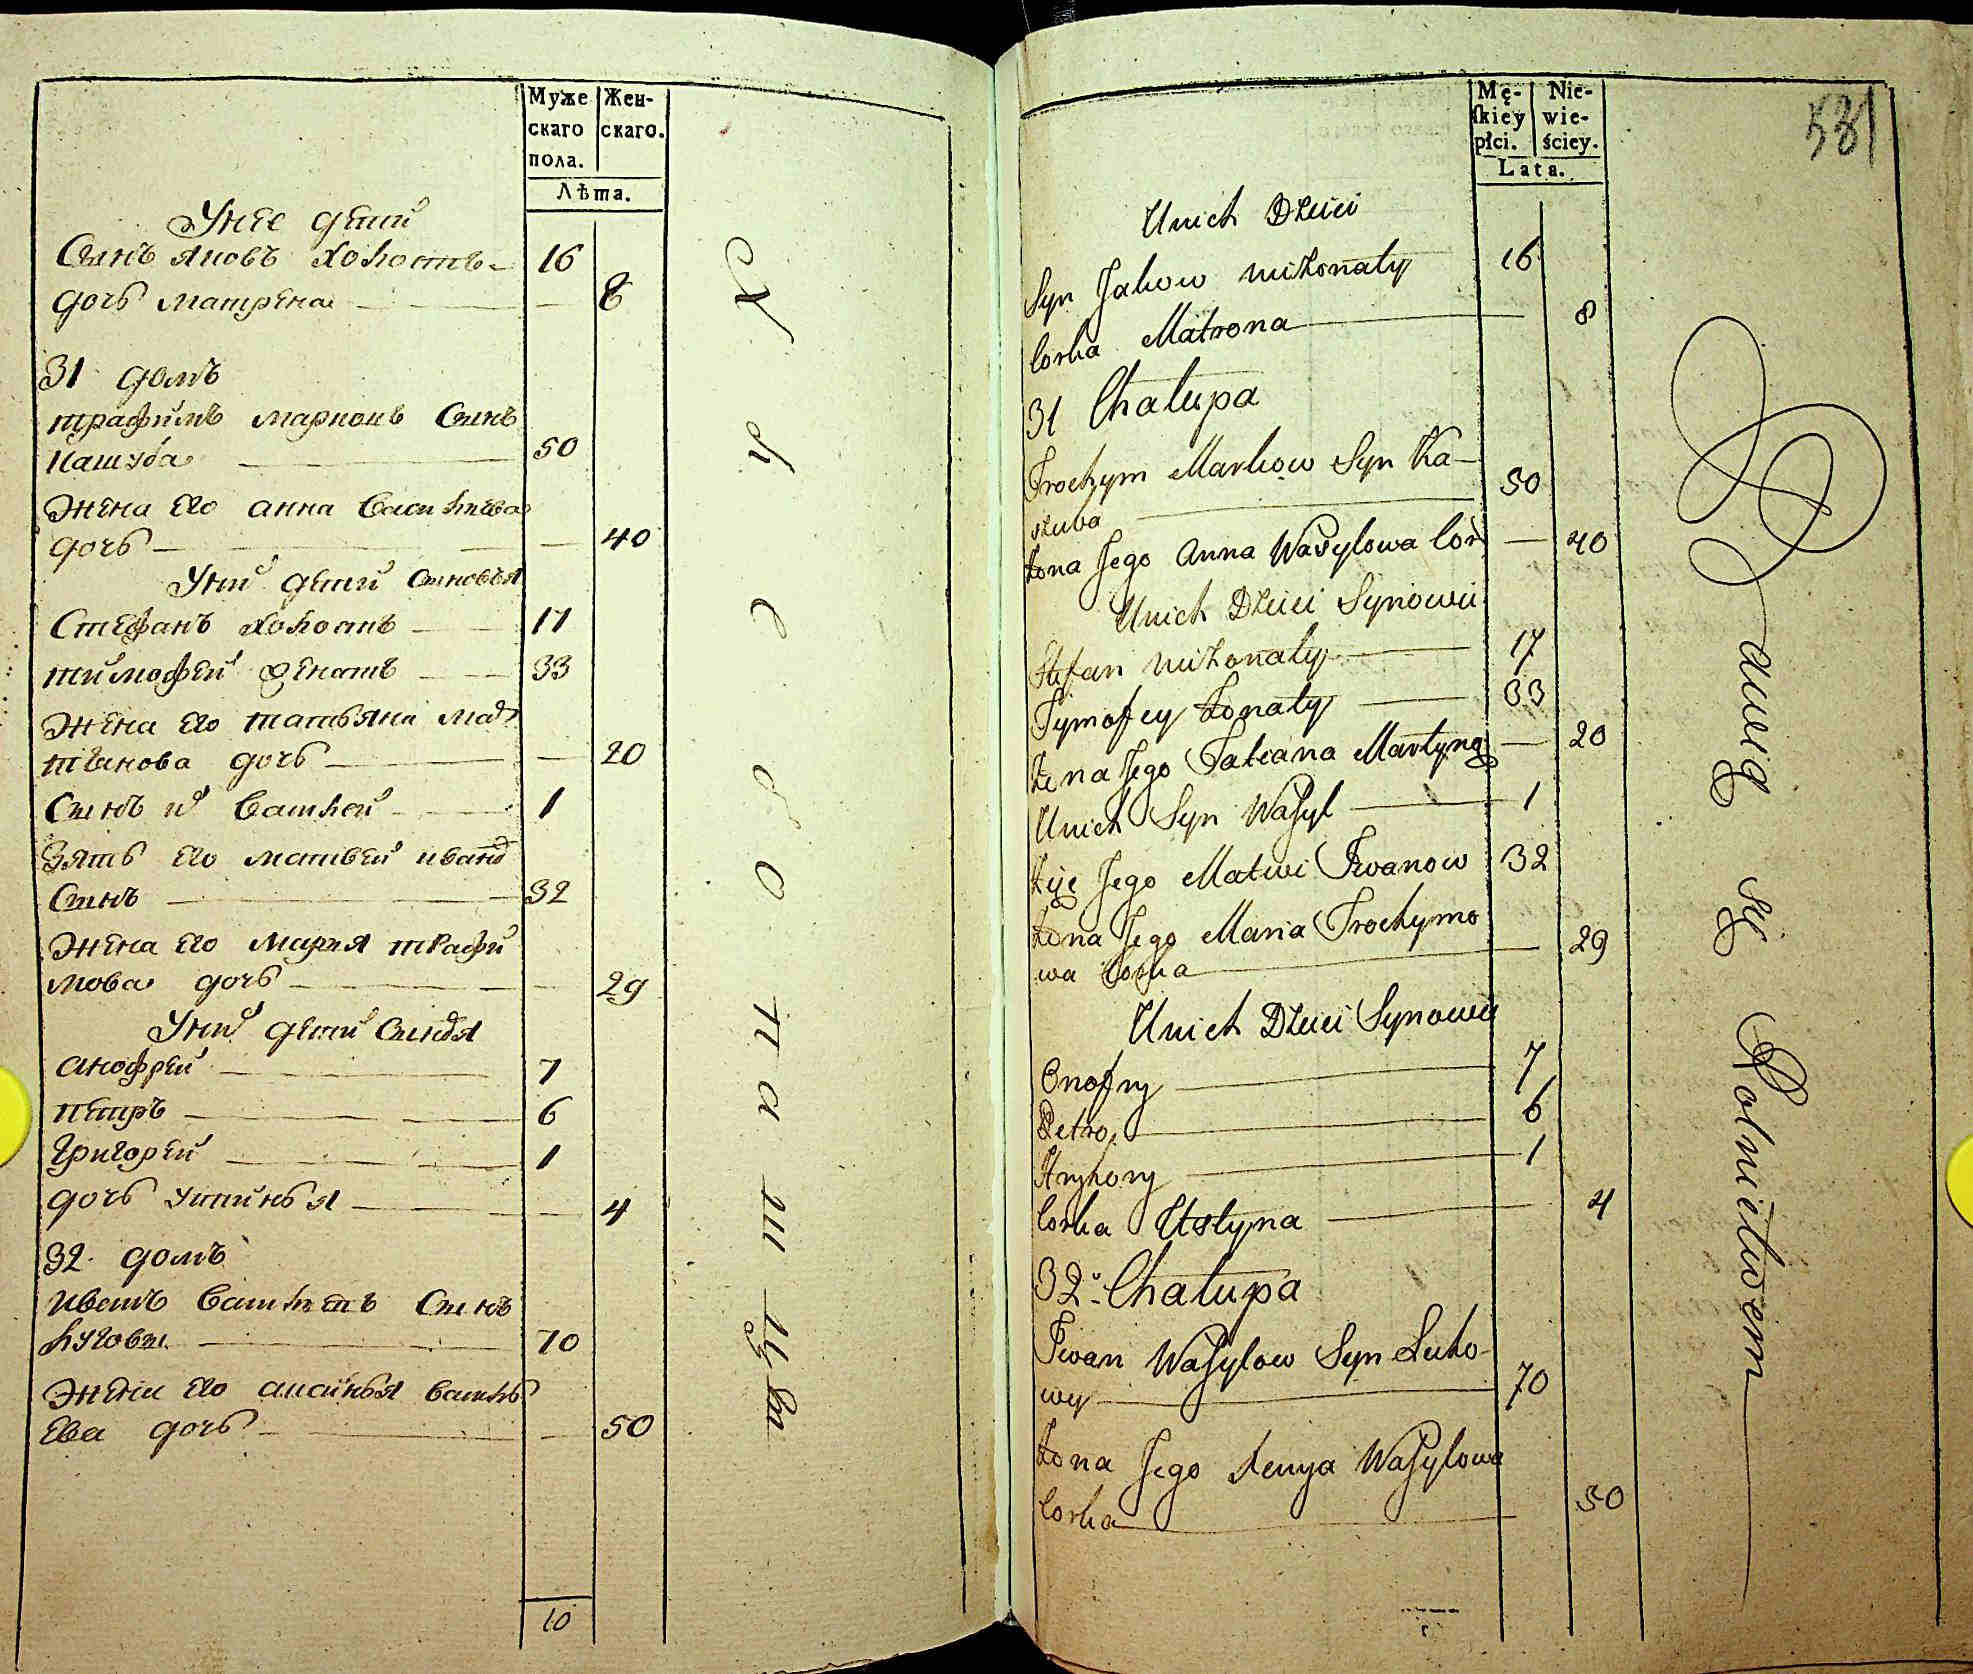 Муже
скаго
пола.
Жен-
скаго.
Лѣта.
Унее дети
Сынъ яковъ холостъ 16
дочь матрена 8
31 домъ
трафимъ марковъ Сынъ
кашуба 50
Жена Его анна василева
дочь 40
Уних дети Сыновья
Стефанъ холостъ 17
тимофеи женатъ 33
Жена Его татьяна мар
тинова дочь 20
Сынъ их василеи 1
Зять Его матвеи иванов
Сынъ 32
Жена Его мария трафи
мова дочь 29
Уних дети Синовя
анофреи 7
петръ 6
Григореи 1
дочь устинья 4
32 домъ
иванъ василевъ Сынъ
луговы 70
Жена Его аксинья василь
Ева дочь 50
10
Хлебопашцы
Mę-
ſkiey
płci.
Nie-
wie-
ściey.
Lata.
581
Unich Dzieci
Syn Jakow nieżonaty 16
Corka Matrona 8
31 Chałupa
Trochym Markow Syn Ka-
szuba 50
żona Jego Anna Wasylowa Cor 40
Unich Dzieci Synowie
Stefan nieżonaty 17
Tymofey żonaty 33
żena Jego Tatiana Martyno 20
Unich Syn Wasyl 1
Zięć Jego Matwi Iwanow 32
żona Jego Maria Trochymo
wa Corka 29
Unich Dzieci Synowie
Onofry 7
Petro 6
Hryhory 1
Corka Ustyna 4
32 Chałupa
Iwan Wasylow Syn Łuho-
wy 70
żona Jego Xenya Wasylowa
Corka 50
Bawią się Rolnictwem